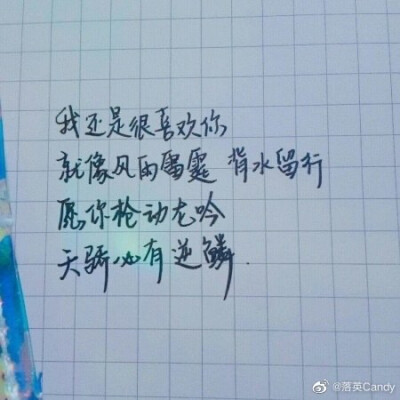 我还是很喜欢你
就像风雨雷霆 背水留行
愿你枪动龙吟
天骄必有逆鳞.
@落英Candy